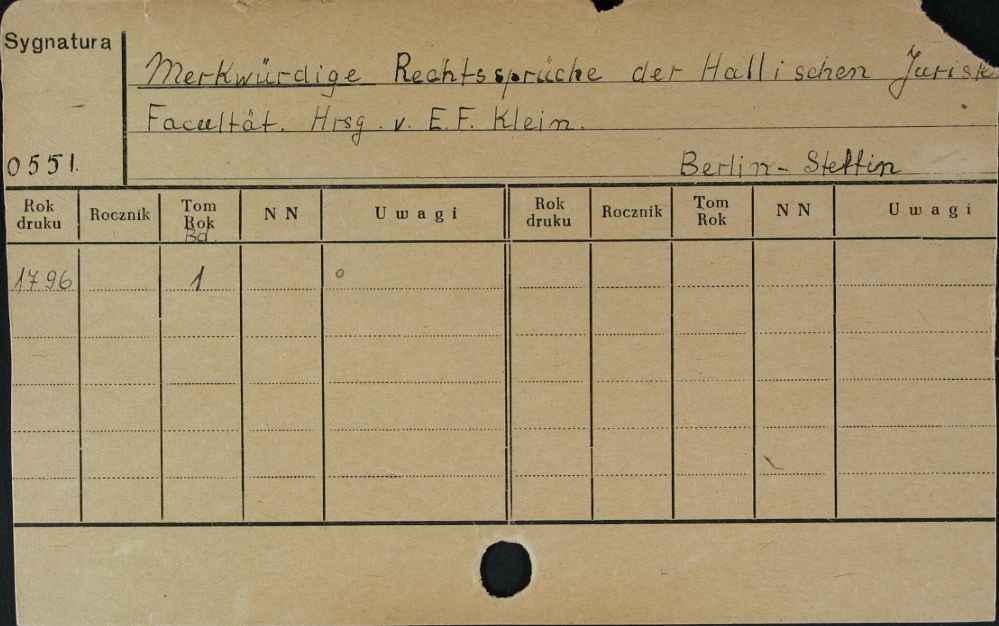 Sygnatura
Merkwürdige Rechtssprüche der Hallischen Jurist
Facultät. Hrsg. v. E.F. Klein.
0551.
Berlin - Stettin
Rok druku Rocznik Tom Rok NN Uwagi Rok druku Rocznik Tom Rok NN Uwagi
Bd.
1796 1 o